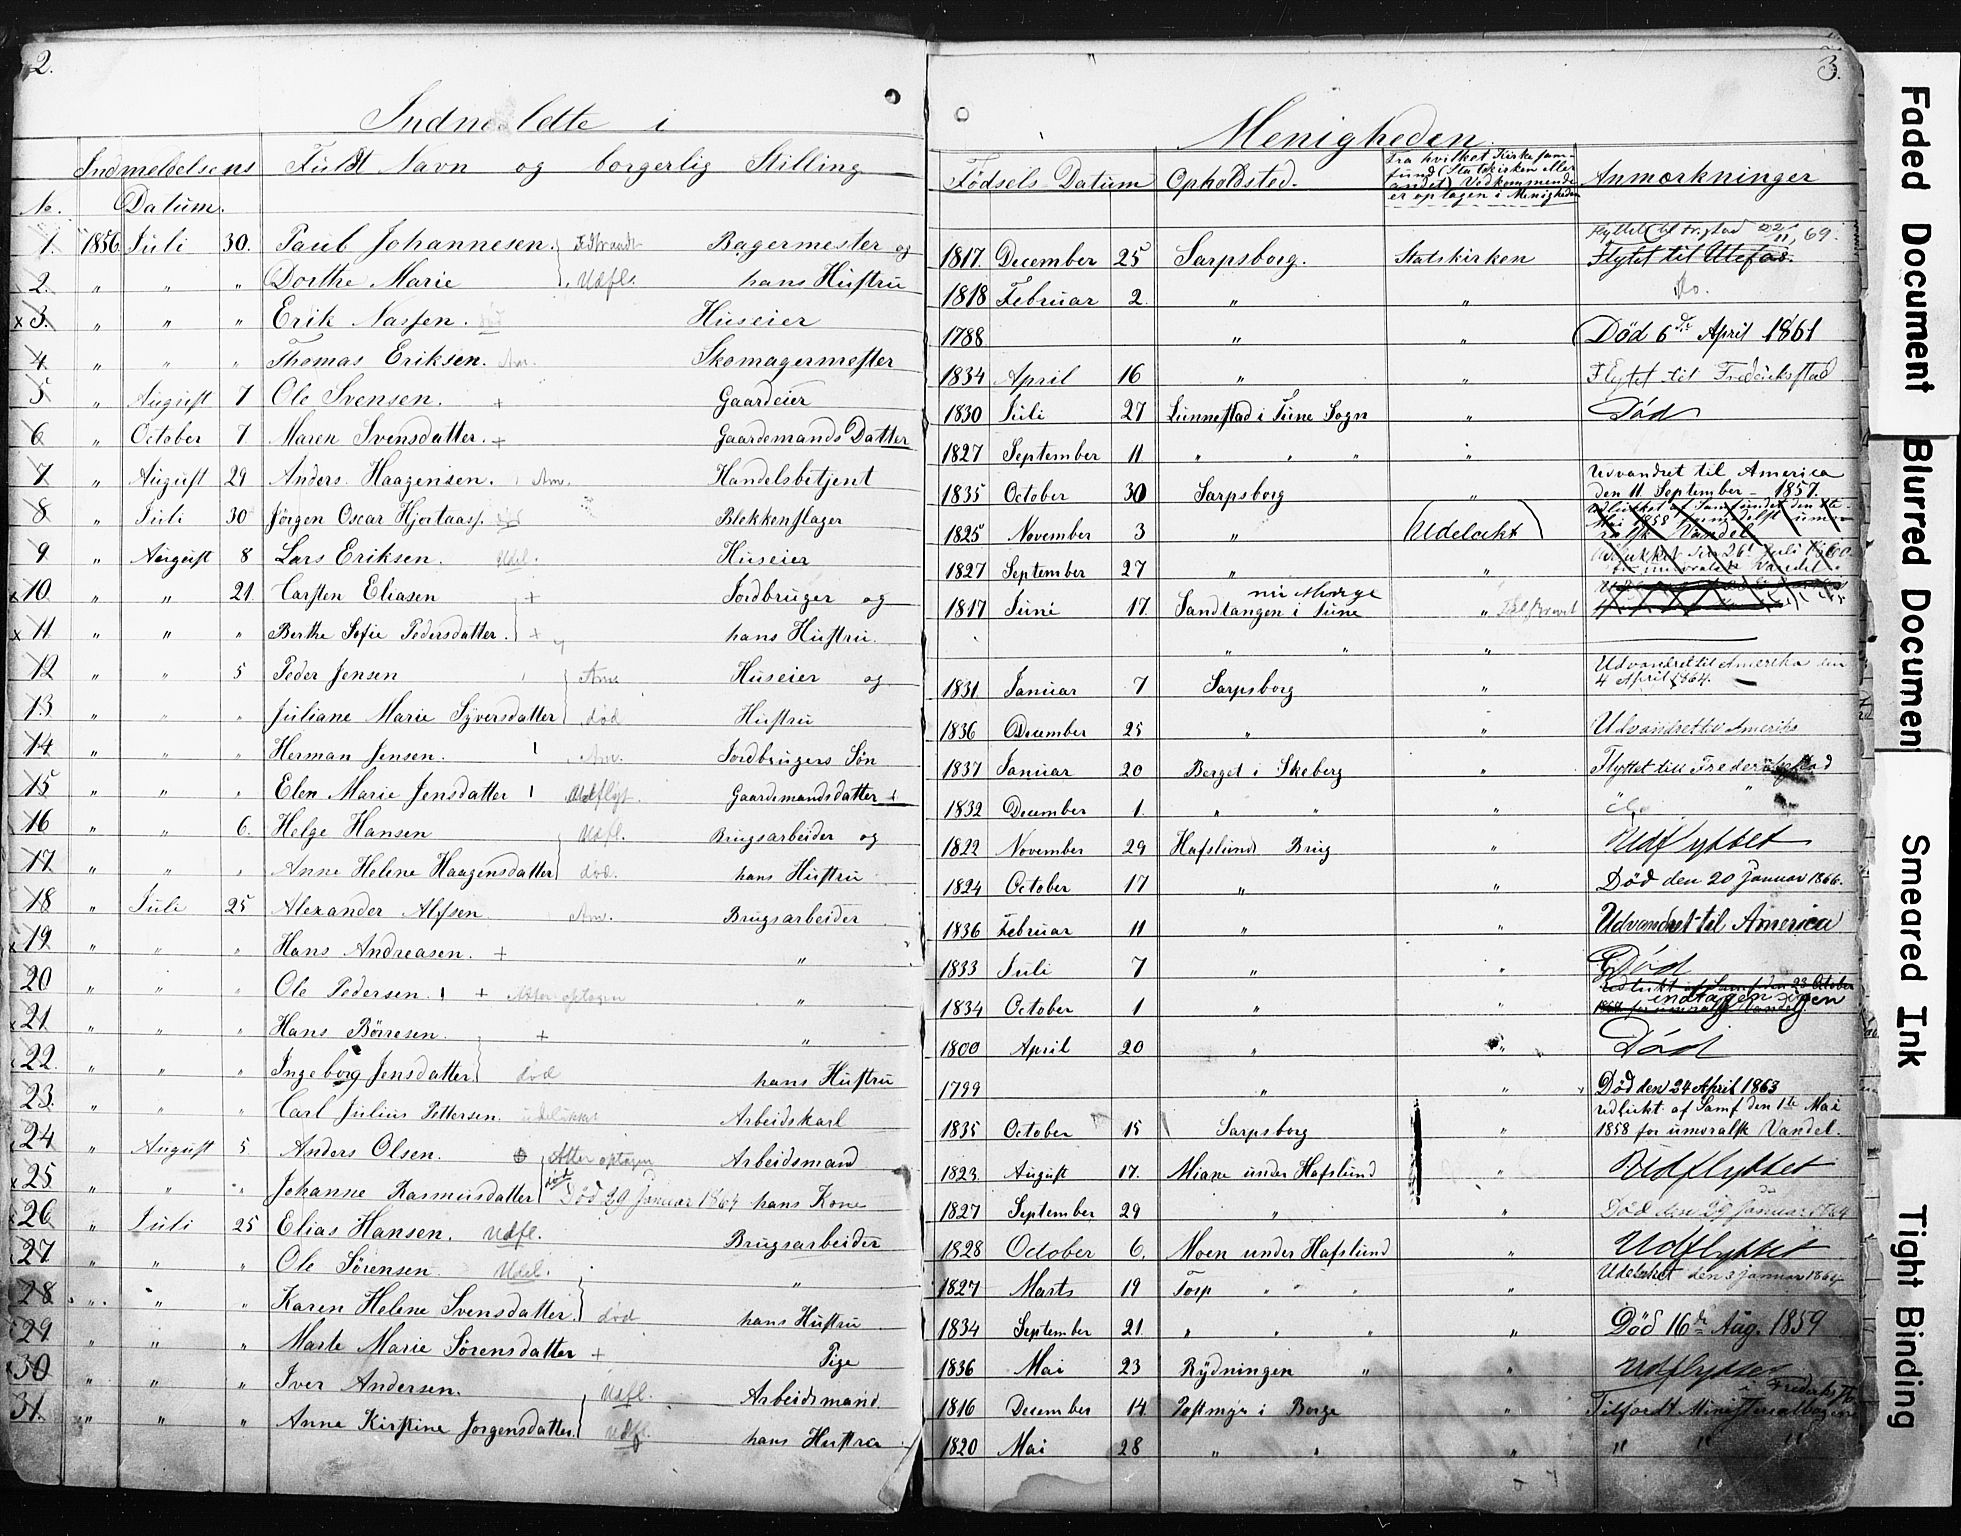 2.
Indmeldte i
Indmeldelsens Fuldt Navn og borgerlig Stilling
No. Datum.
1. 1856 Juli 30. Paul Johannesen. Bagermester og
2. " " " Dorthe Marie Udfl. hans Hustru
x 3. " " " Erik Nassen. død Huseier
4 " " " Thomas Eriksen. Am. Skomagermester
5 " August 7 Ole Svensen. + Gaardeier
6 " October 7 Maren Svensdatter. + Gaardemands Datter
7 " August 29 Anders Haagensen. Am. Handelsbetjent
8 " Juli 30 Jørgen Oscar Hjortaas. Blekkenslager
9 " August 8 Lars Eriksen. Udel. Huseier
x 10. " " 21. Carsten Eliasen + Jordbruger og
x 11. " " " Berthe Sofie Pedersdatter. + hans Hustru.
12 " " 5 Peder Jensen Ame Huseier og
13 " " " Juliane Marie Syversdatter død Hustru
14 " " " Herman Jensen. Am. Jordbrugers Søn
15 " " " Elen Marie Jensdatter Udflyt. Gaardemandsdatter +
16 " " 6. Helge Hansen Udfl. Brugsarbeider og
17. " " " Anne Helene Haagensdatter død. hans Hustru
18 " Juli 25 Alexander Alfsen Am. Brugsarbeider
x 19 " " " Hans Andreasen. + "
20 " " " Ole Pedersen. + Atter optagen "
x 21. " " " Hans Børresen. + "
22. " " " Ingeborg Jensdatter død hans Hustru
23. " " " Carl Julius Pettersen. udelukket Arbeidskarl
24 " August 5 Anders Olsen. Atter optagen Arbeidsmand
x 25 " " " Johanne Rasmusdatter Død 29 Januar 1864 hans Kone
26 " Juli 25 Elias Hansen. Udfl. Brugsarbeider
27 " " " Ole Sørensen Udel. "
28 " " " Karen Helene Svensdatter død hans Hustru
29 " " " Marte Marie Sørensdatter + Pige
30 " " " Iver Andersen. Udfl. Arbeidsmand
31. " " " Anne Kirstine Jorgensdatter. Udfl. hans Hustru
3.
Menigheden.
Fødsels Datum Opholdsted. Fra hvilket Kirkesam-
fund (Statskirken eller
andet) Vedkommende
er optagen i Menigheden Anmærkninger
Flyttet til Fr.stad 22/11, 69.
1817. December 25 Sarpsborg. Statskirken Flytet til
1818 Februar 2. " " Do.
1788 " " Død 6te April 1861
1834 April 16 " " Flytet til Frederikstad
1830 Juli 27 Lunnestad i Tune Sogn " Død
1827 September 11 " " " "
1835 October 30 Sarpsborg " Udvandret til America
den 11 September 1857.
1825 November 3 " Udelukt udlukket af Samfundet den
Mai 1858 Vandel
1827 September 27 " " den 26 Juli 1860
Vandel
1817 Juni 17. Sandtangen i Tune "
" " "
1831. Januar 7 Sarpsborg " Udvandret til Amerika den
4 April 1864.
1836 December 25 " " Udvandret til Amerika
1837 Januar 20 Berget i Skeberg " Flyttet till Frederikstad
1832 December 1. " " "
1822 November 29 Hafslund Brug " Udflyttet
1824 October 17 " " Død den 20 Januar 1866.
1836 Februar 11 " " Udvandret til America
1833 Juli 7 " " Død
1834 October 1 " " Udlukt af Samf den 23 October
indtagen igen
for umoralsk Vandel.
1800 April 20 " " Død
1799 " " Død den 24 April 1863
1835 October 15 Sarpsborg " udlukt af Samf den 1te Mai
1858 for umoralsk Vandel.
1823 August 17. Miane under Hafslund " Udflyttet
1827 September 29 " " Død den 29 Januar 1864
1828 October 6. Moen under Hafslund " Udflyttet
1827 Marts 19 Torp " " " Udelukket den 3 januar 1864
1834 September 21. " " " " Død 16de Aug. 1859
1836 Mai 23 Rydningen " " Udflyttet
1816 December 14. Postmyr i Borge " Tilførdt Ministerialbogen Frederikst.
1820 Mai 28 " " " " " "
Faded Document
Blurred Document
Smeared Ink
Tight Binding